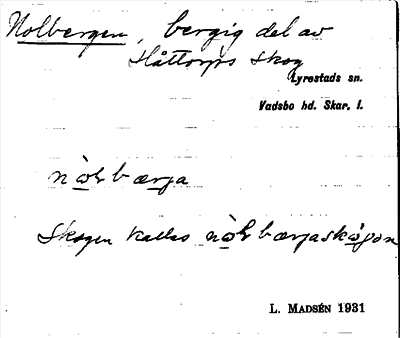 Nolbergen, bergig del av
Håttorps skog
Lyrestads sn.
Vadsbo hd. Skar. l.
nòlbærja
Skogen kallas nòlbærjaskógən
L. MADSÉN 1931